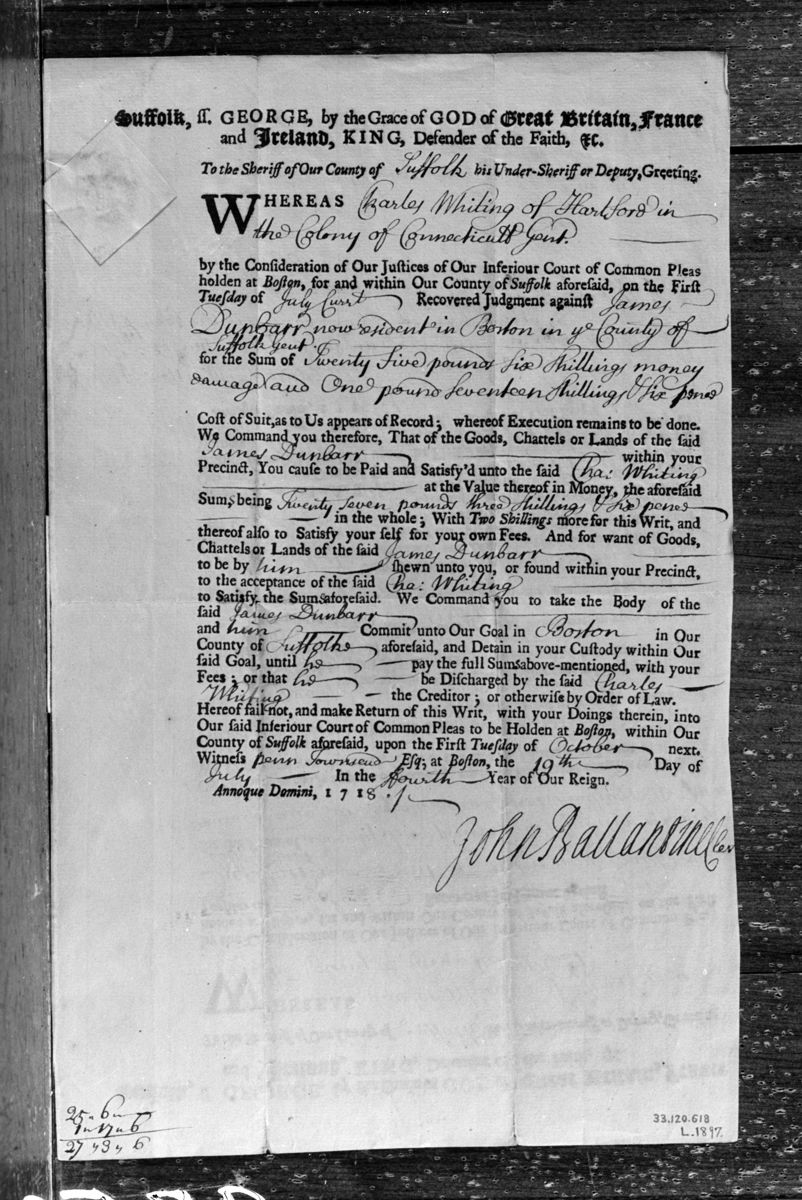 Suffolk, ſſ. GEORGE, by the Grace of GOD of Great Britain, France
and Ireland, KING, Defender of the Faith, &c.
To the Sheriff of Our County of Suffolk his Under-Sheriff or Deputy, Greeting.
WHEREAS Charles Whiting of Hartford in
the Colony of Connecticutt Gent.
by the Conſideration of Our Juſtices of Our Inferiour Court of Common Pleas
holden at Boſton, for and within Our County of Suffolk aforeſaid, on the Firſt
Tueſday of July Currt Recovered Judgment againſt James
Dunbarr now resident in Boston in ye County of
Suffolk Gent.
for the Sum of Twenty Five pounds Six Shillings money
damage and One pound Seventeen Shillings & Six pence
Coſt of Suit, as to Us appears of Record; whereof Execution remains to be done.
We Command you therefore, That of the Goods, Chattels or Lands of the ſaid
James Dunbarr within your
Precinct, You cauſe to be Paid and Satisfy'd unto the ſaid Cha: Whiting
at the Value thereof in Money, the aforeſaid
Sums being Twenty Seven pounds three Shillings & Six pence
in the whole; With Two Shillings more for this Writ, and
thereof alſo to Satisfy your ſelf for your own Fees. And for want of Goods,
Chattels or Lands of the ſaid James Dunbarr
to be by him ſhewn unto you, or found within your Precinct,
to the acceptance of the ſaid Cha: Whiting
to Satisfy the Sums aforeſaid. We Command you to take the Body of the
ſaid James Dunbarr
and him Commit unto Our Goal in Boston in Our
County of Suffolke aforeſaid, and Detain in your Cuſtody within Our
ſaid Goal, until he pay the full Sums above-mentioned, with your
Fees; or that he be Diſcharged by the ſaid Charles
Whiting the Creditor; or otherwiſe by Order of Law.
Hereof fail not, and make Return of this Writ, with your Doings therein, into
Our ſaid Inferiour Court of Common Pleas to be Holden at Boſton, within Our
County of Suffolk aforeſaid, upon the Firſt Tueſday of October next.
Witneſs Penn Townsend Eſq; at Boſton, the 19th Day of
July In the Fourth Year of Our Reign.
Annoque Domini, 1718.
John Ballantine Cler
25 " 6 "
1 " 17 " 6
27 " 3 " 6
33.120.618
L.1897